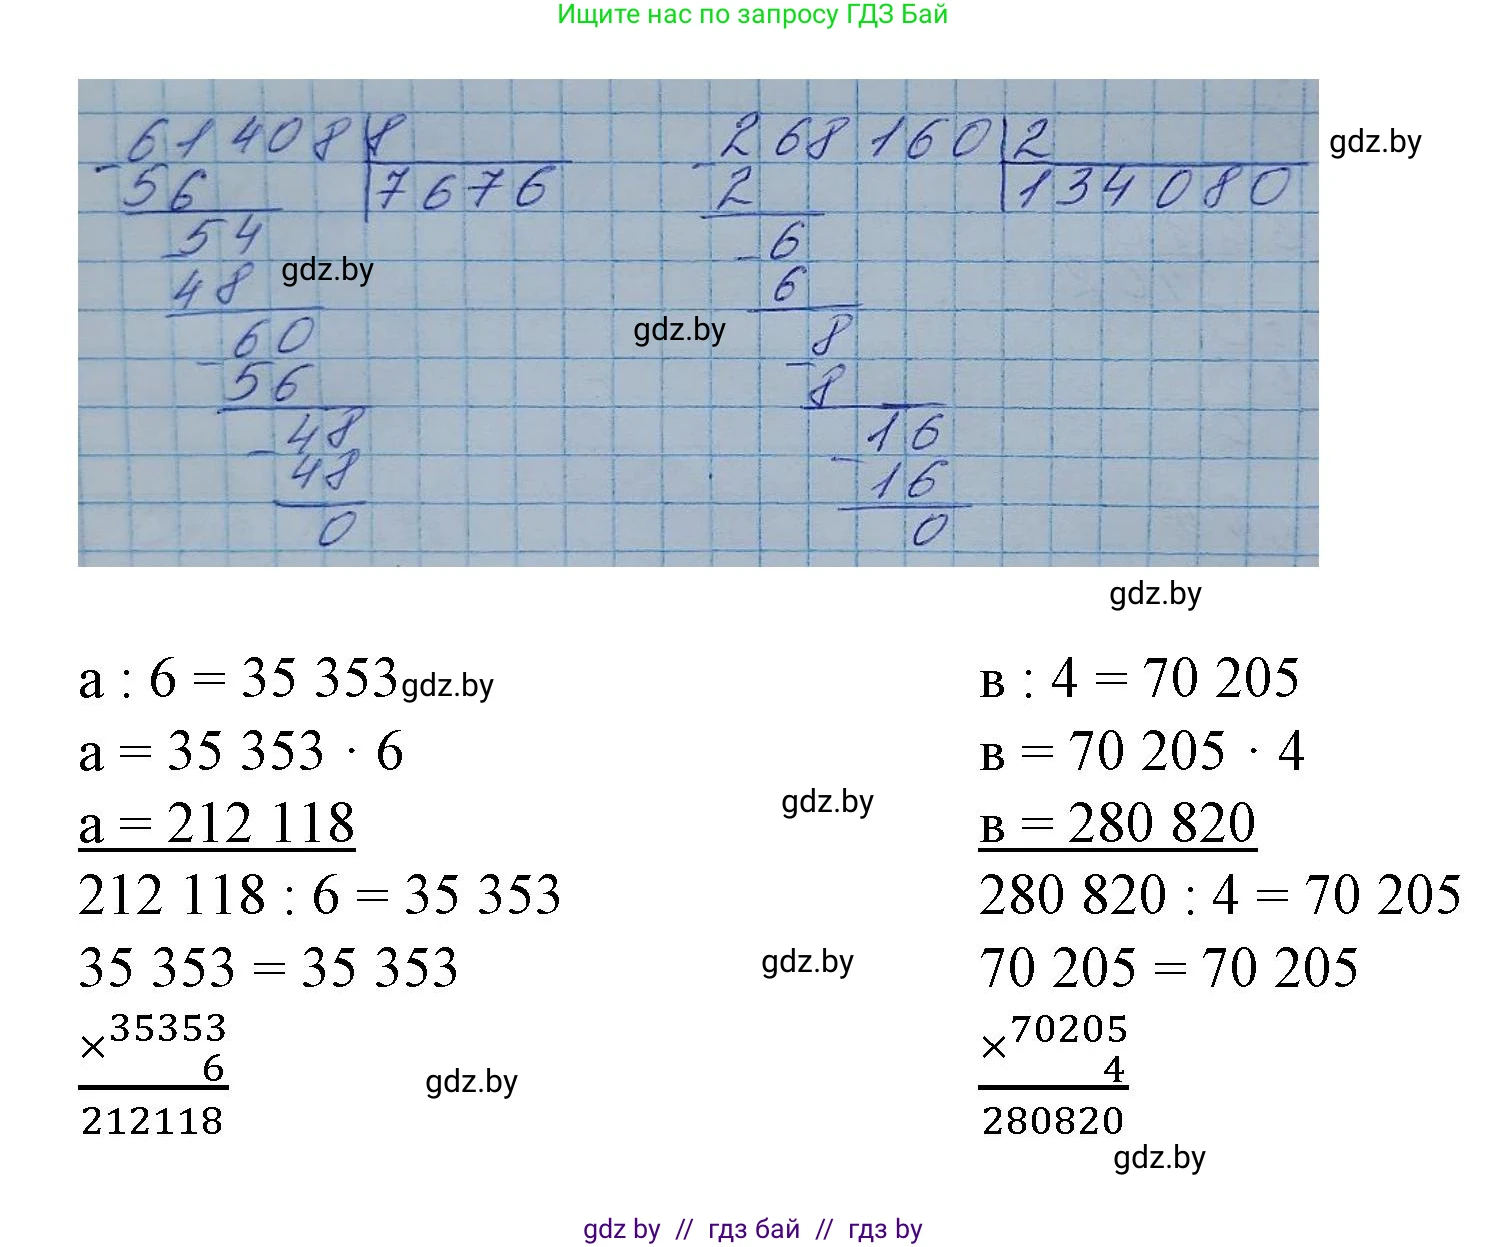 Ищите нас по запросу ГДЗ Бай
61408 8
- 56 7676
54
- 48
60
- 56
48
- 48
0
268160 2
- 2 134080
6
- 6
8
- 8
16
- 16
0
gdz.by
gdz.by
gdz.by
gdz.by
а : 6 = 35 353
gdz.by
а = 35 353 · 6
а = 212 118
212 118 : 6 = 35 353
35 353 = 35 353
× 35353
6
212118
gdz.by
gdz.by
gdz.by
в : 4 = 70 205
в = 70 205 · 4
в = 280 820
280 820 : 4 = 70 205
70 205 = 70 205
× 70205
4
280820
gdz.by
gdz by // гдз бай // гдз by